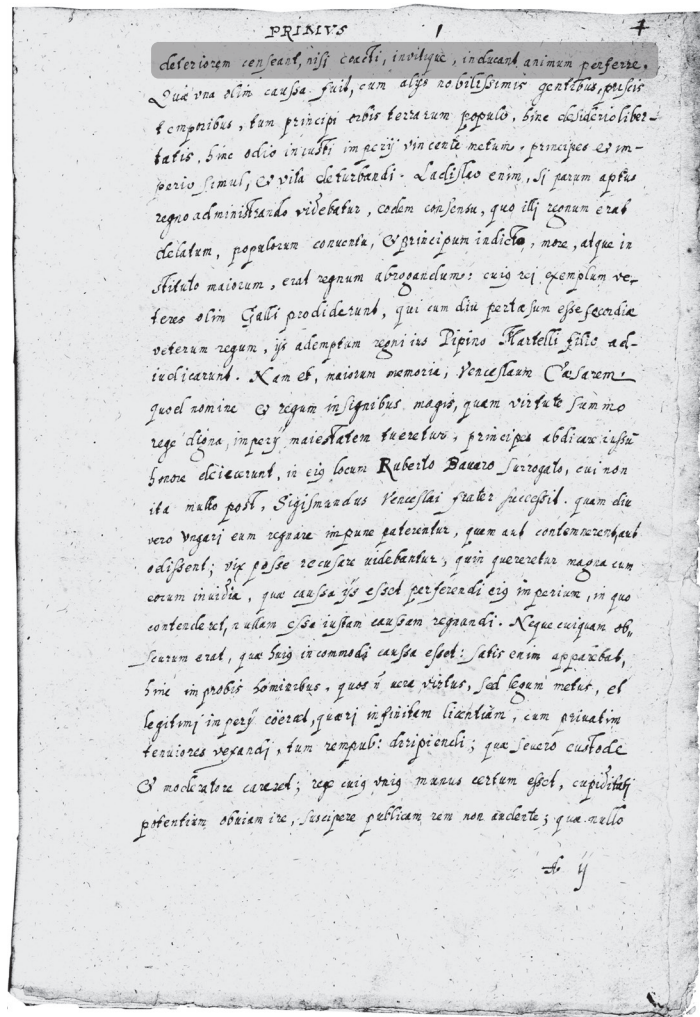 PRIMVS 1 4
deteriorem censeant, nisi coacti, invitique, inducant animum perferre.
Quæ vna olim caussa fuit, cum alijs nobilissimis gentibus, priscis
temporibus, tum principi orbis terrarum populo, hinc desiderio liber-
tatis, hinc odio iniusti imperij vincente metum, principes et im-
perio simul, & vita deturbandi. Ladislao enim, si parum aptus
regno administrando videbatur, eodem consensu, quo illi regnum erat
delatum, populorum conuentu, & principum indicto, more, atque in
stituto maiorum, erat regnum abrogandum: cuius rei exemplum ve-
teres olim Galli prodiderunt, qui cum diu pertæsum esse secordiæ
veterum regum, ijs ademptum regni ius Pipino Martelli filio ad-
iudicarunt. Nam et, maiorum memoria, Venceslaum Cæsarem,
quod nomine & regum insignibus magis, quam virtute summo
rege digna, imperij maiestatem tueretur, principes abdicare iussum
honore deiecerunt, in eius locum Ruberto Bauaro surrogato, cui non
ita multo post, Sigismundus Venceslai frater successit. quam diu
vero Vngari eum regnare impune paterentur, quem aut contemnerent, aut
odissent; vix posse recusare uidebantur, quin quereretur magna cum
eorum inuidia, quæ caussa ijs esset perferendi eius imperium, in quo
contenderet, nullam esse iustam caussam regnandi. Neque cuiquam ob-
scurum erat, quæ huius incommodi caussa esset: satis enim apparebat,
hinc improbis hominibus, quos n̄ uera virtus, sed legum metus, et
legitimi imperij coërcet, quæri infinitam licentiam, cum priuatim
tenuiores vexandi, tum rempub: diripiendi; quæ seuero custode
& moderatore careret; rege cuius vnius munus certum esset, cupiditati
potentium obuiam ire, suscipere publicam rem non audente; quæ nullo
A ij